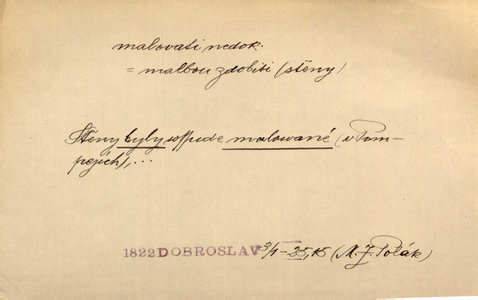 malovati nedok.
= malbou zdobiti (stěny)
Stěny byly wssude malowané (v Pom-
pejích), ...
1822 DOBROSLAV 3/1 - 25, 15 (M. J. Polák)